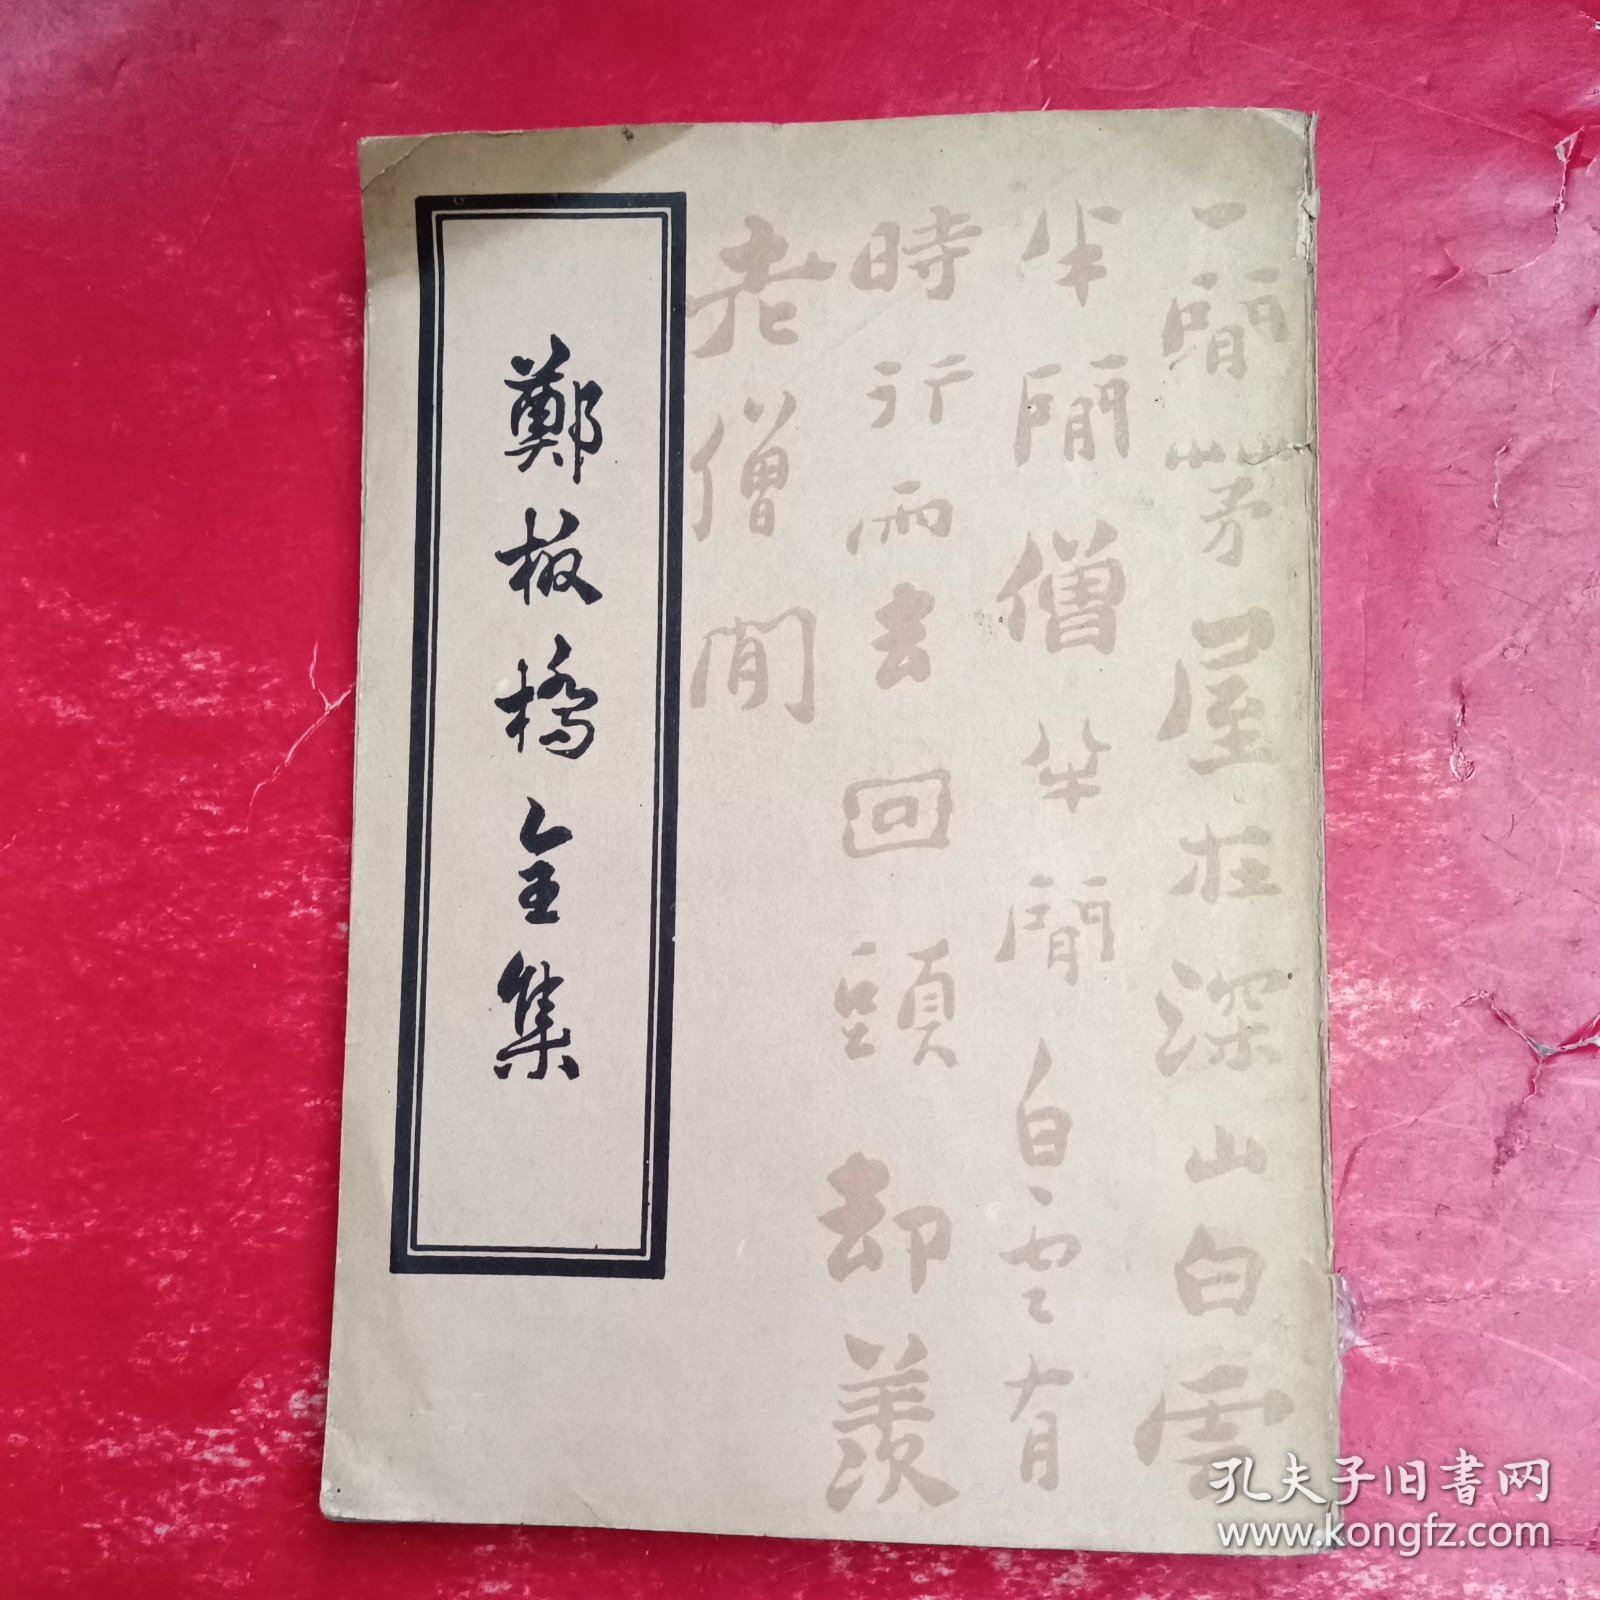 一閒茅屋在深山白雲
半閒僧半閒白雲有
時行雨去回頭却羨
老僧閒
鄭板橋全集
孔夫子旧書网
www.kongfz.com